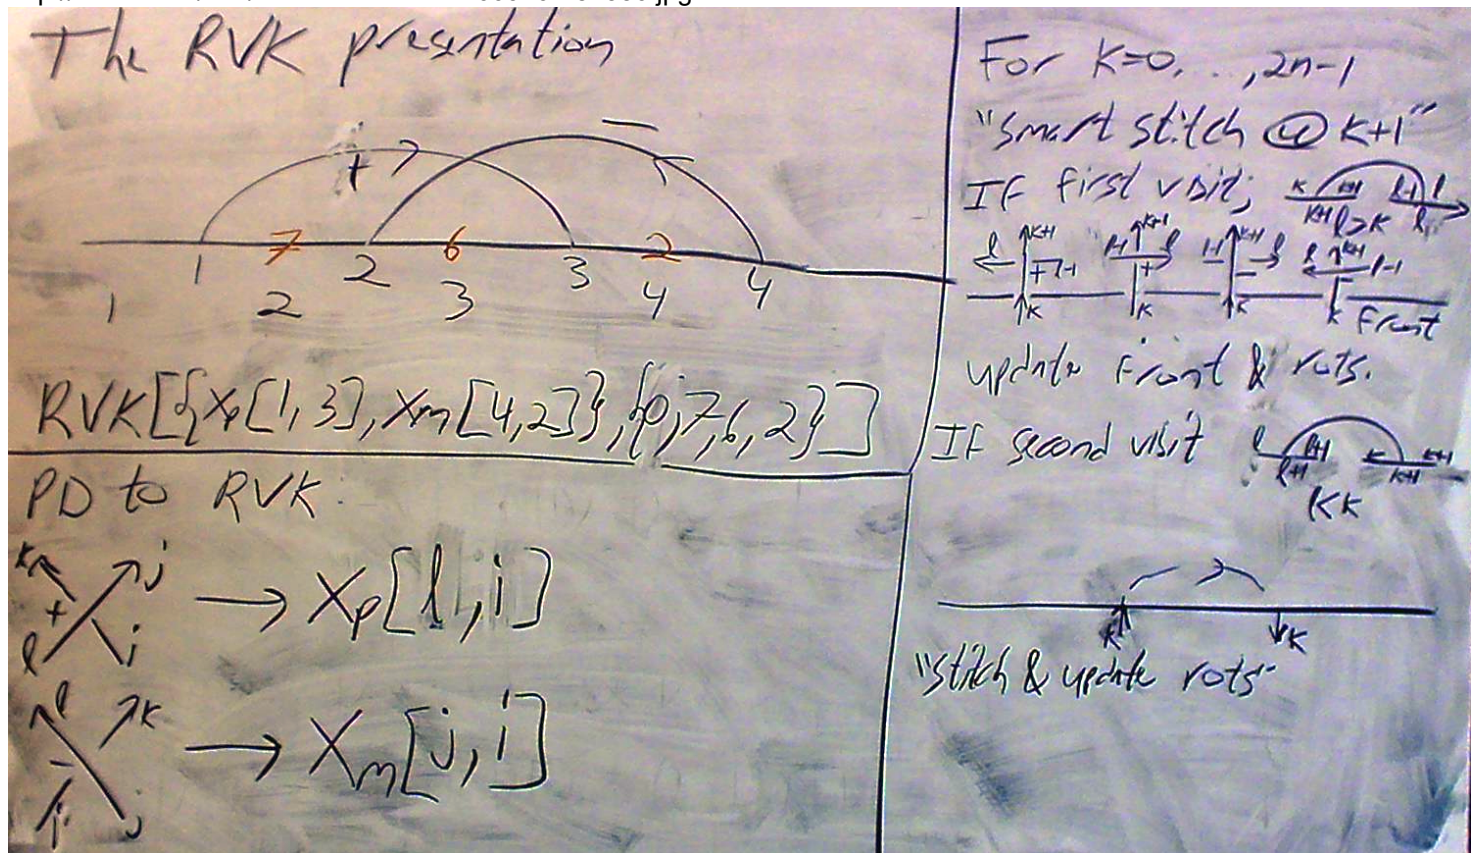 The RVK presentation
+ −
7 6 2
1 2 3 4
1 2 3 4
RVK[{Xp[1,3], Xm[4,2]}, {0,7,6,2}]
PD to RVK:
k j
+ → Xp[l,i]
l i
l k
− → Xm[j,i]
i j
For k=0,...,2n-1
"smart stitch @ k+1"
If first visit;
k k+1 l-1 l
k+1 l>k l
l k+1 k+1 l k+1 k+1
+ l-1 l-1 + l-1 − l l − l-1
k k k k Front
update front & rots.
If second visit
l l+1 k k+1
l+1 k+1
l<k
k k
"stitch & update rots"